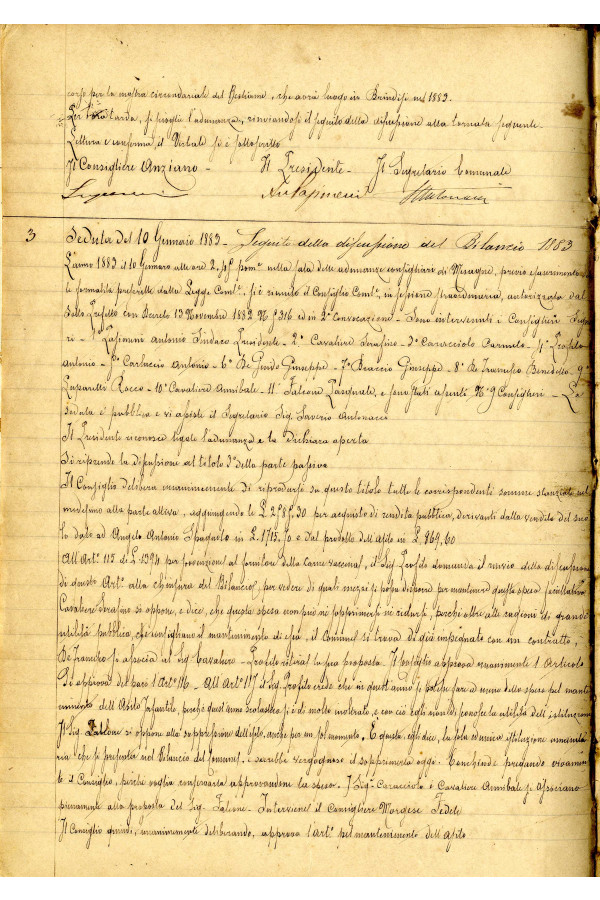 corso per la mostra circondariale del Bestiame, che avrà luogo in Brindisi nel 1883.
Per l'ora tarda, si scioglie l'adunanza, rinviandosi il seguito della discussione alla tornata seguente.
Lettura e conferma il Verbale si è sottoscritto
Il Consigliere Anziano - Il Presidente - Il Segretario Comunale
3 Seduta del 10 Gennaio 1883 - Seguito della discussione del Bilancio 1883
L'anno 1883 il 10 Gennaro alle ore 2 pom. nella sala delle adunanze consigliari di Mesagne, previo esaurimento
le formalità prescritte dalla Legge Comle. si è riunito il Consiglio Comle. in sessione straordinaria, autorizzata dal
Sotto Prefetto con Decreto 13 Novembre 1882 N° 8316 ed in 2a Convocazione - Sono intervenuti i Consiglieri Signo
ri - 1° Antonio Sindaco Presidente - 2° Cavaliere Serafino - 3° Caracciolo Carmelo - 4° Profilo
Antonio - 5° Carluccio Antonio - 6° De Guido Giuseppe - 7° Braccio Giuseppe - 8° De Francesco Benedetto - 9°
Rocco - 10° Cavaliere Annibale - 11° Falcone Pasquale, e sono stati assenti N° 9 Consiglieri - La
Seduta è pubblica e vi assiste il Segretario Sig. Saverio Antonucci
Il Presidente riconosce legale l'adunanza e la dichiara aperta
Si riprende la discussione al titolo 3° della parte passiva
Il Consiglio delibera unanimemente di riprodursi su questo titolo tutte le corrispondenti somme stanziate nel
medesimo alla parte attiva, aggiungendo le £ 2585,30 per acquisto di rendita pubblica, derivanti dalla vendita del suo
lo dato ad Angelo Antonio in £ 1715,70 e dal prodotto dell'asilo in £ 869,60
All'Arto. 115 di £ 1394 per sovvenzione al fornitore della carne vaccina, il Sig Profilo domanda il rinvio della discussione
di questo Arto. alla chiusura del Bilancio, per vedere di quali mezzi si possa disporre per mantenere questa spesa facoltativa
Cavaliere Serafino si oppone, e dice, che questa spesa non può nè sopprimersi nè ridursi, perchè oltre alle ragioni di grande
utilità pubblica, che consigliano il mantenimento di essa, il Comune si trova di già impegnato con un contratto,
De Francesco si associa al Sig Cavaliere - Profilo ritira la sua proposta. Il Consiglio approva unanimemente l'Articolo
Si approva del pari l'Arto. 116 - All'Arto. 117 il Sig. Profilo crede che in quest'anno si potesse fare a meno della spesa pel mante
nimento dell'Asilo Infantile, perchè quest'anno scolastico si è di molto inoltrato, e con ciò egli non disconosce la utilità dell'istituzione
Il Sig. Falcone si oppone alla soppressione dell'asilo, anche per un sol momento, È questa egli dice, la sola ed unica istituzione umanita
ria che si presenta nel Bilancio del Comune, e sarebbe vergognoso il sopprimerla oggi. Conchiude pregando vivamen
te il Consiglio, perchè voglia conservarla approvandone la spesa - I Sigi. Caracciolo e Cavaliere Annibale si associano
pienamente alla proposta del Sig. Falcone - Interviene il Consigliere Morgese Fedele
Il Consiglio quindi, unanimemente deliberando, approva l'Arto. pel mantenimento dell'asilo